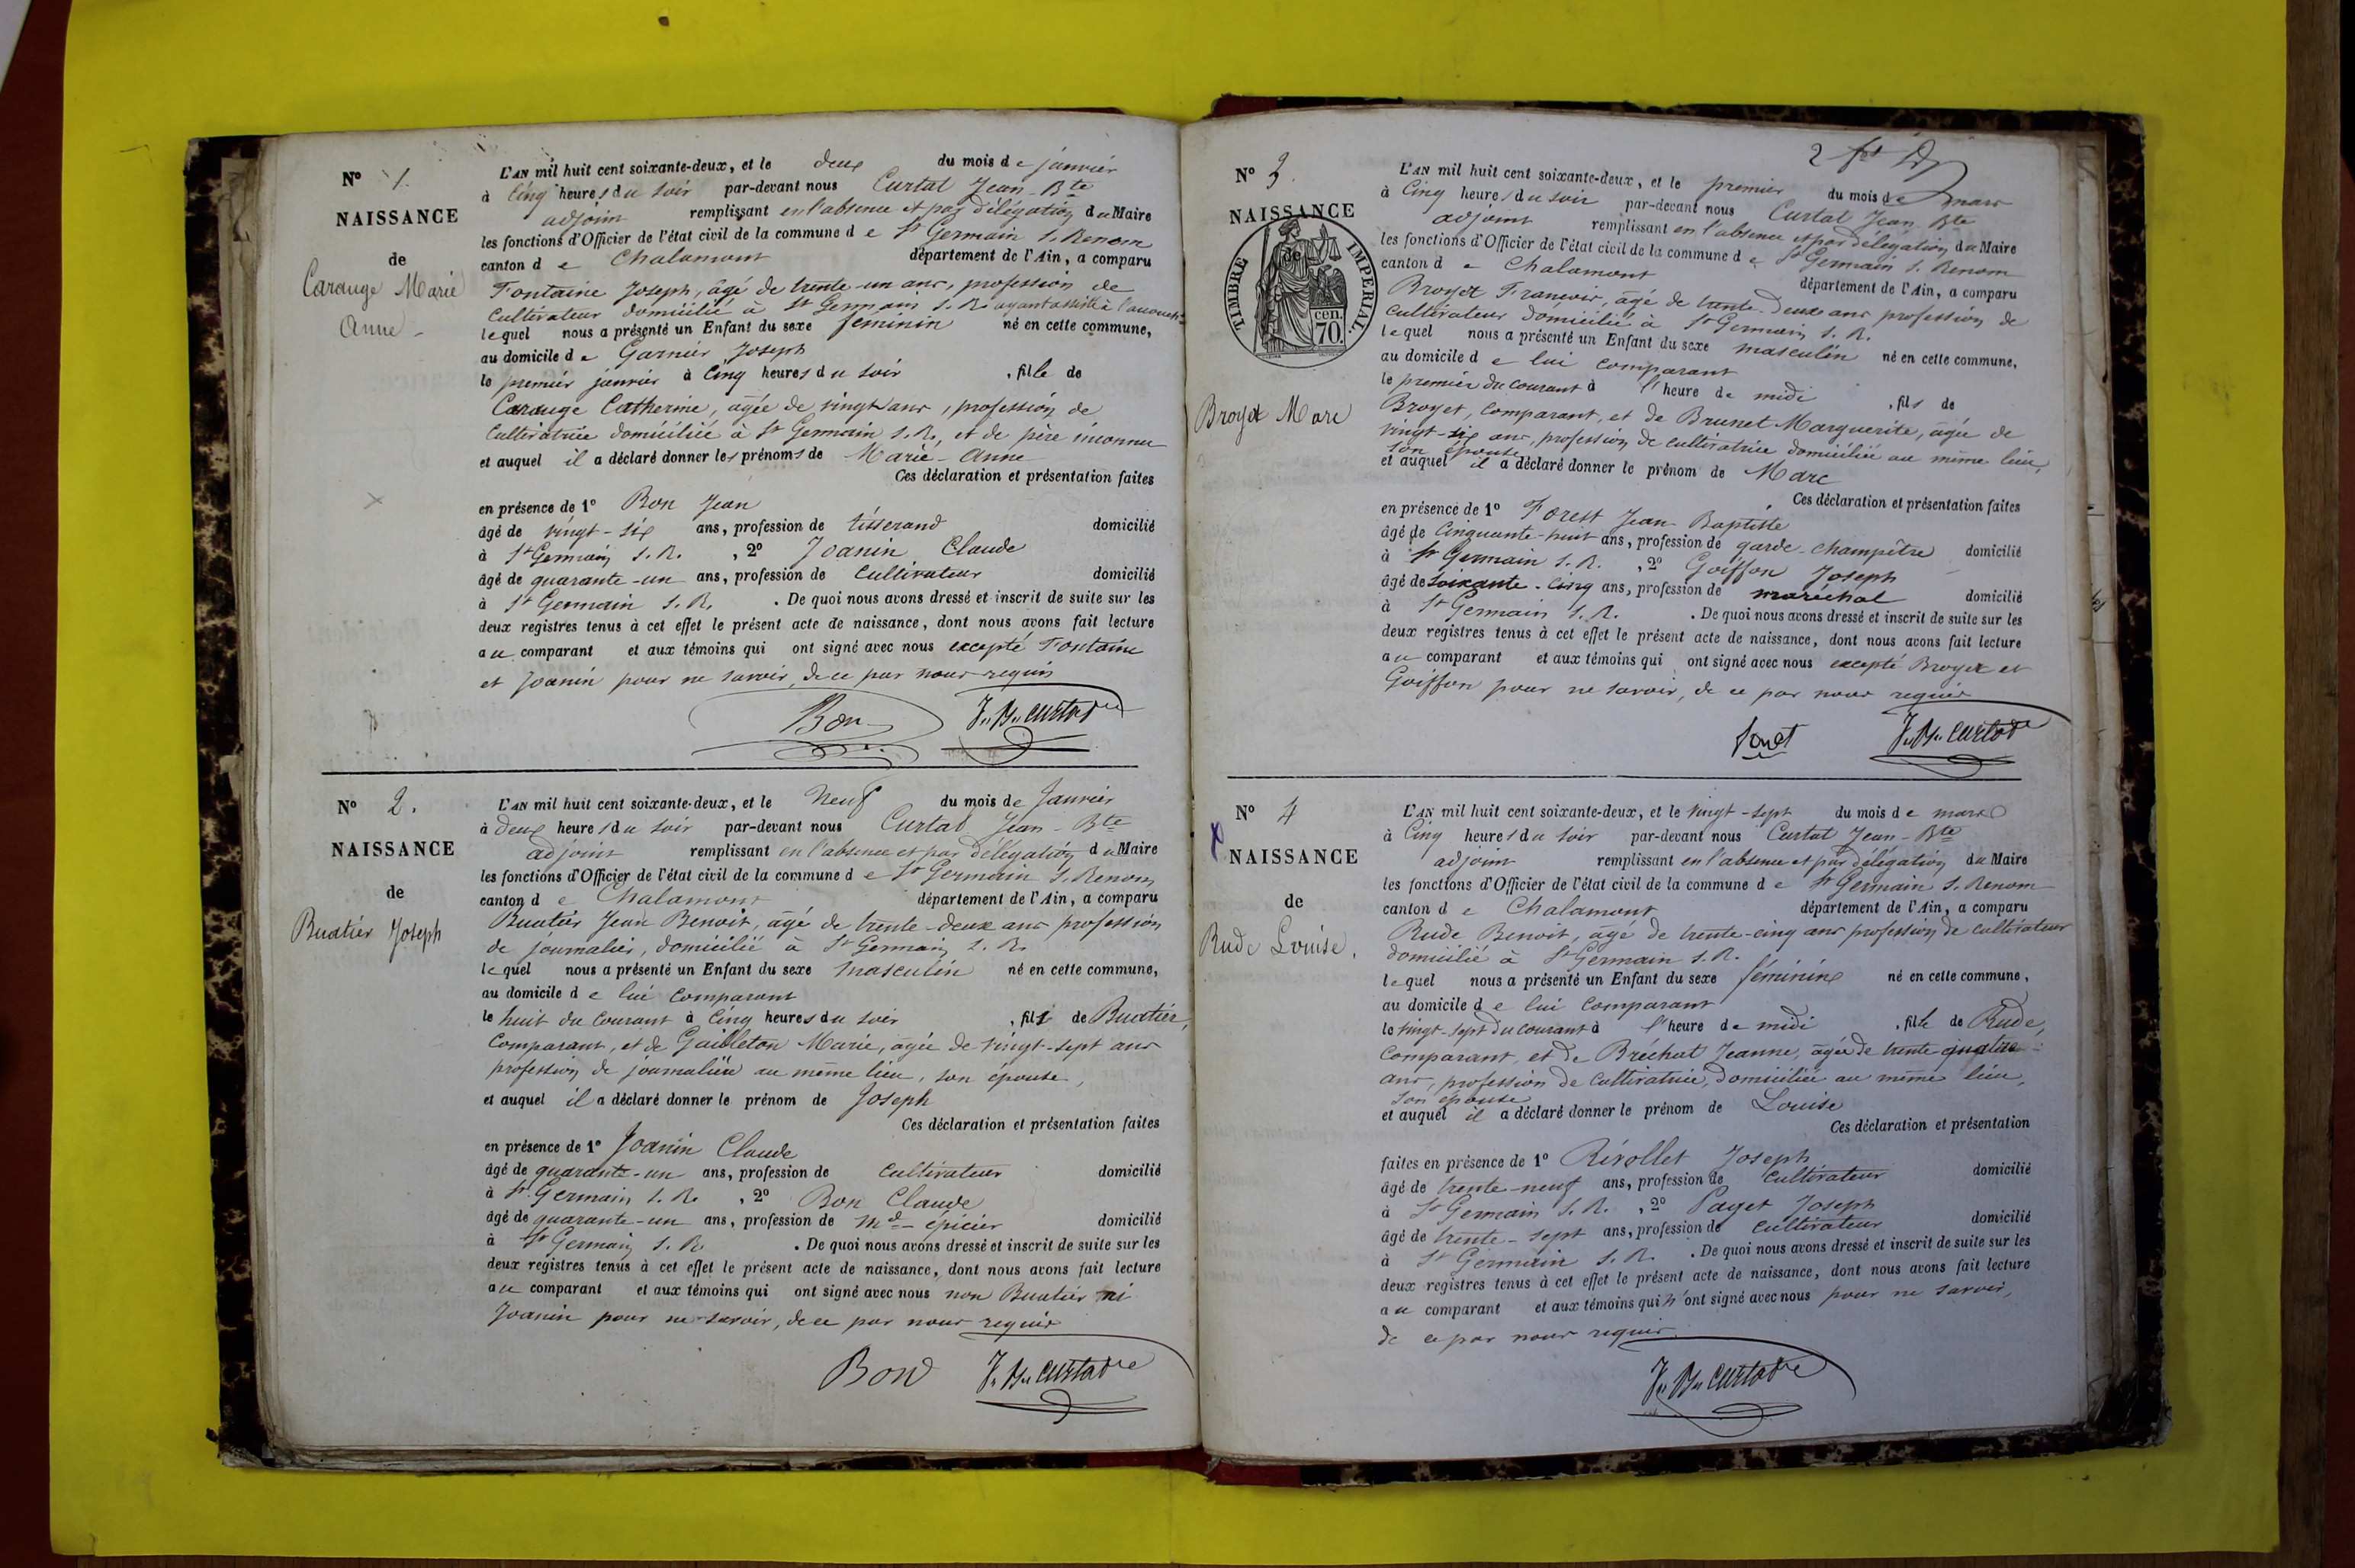 N° 1.
NAISSANCE
de
Carauge Marie
Anne
L'AN mil huit cent soixante-deux, et le deux du mois de janvier
à Cinq heures du soir par-devant nous Curtat Jean-Bte
adjoint remplissant en l'absence et par délégation du Maire
les fonctions d'Officier de l'état civil de la commune de St Germain s. Renom
canton de Chalamont département de l'Ain, a comparu
Fontaine Joseph, âgé de trente-un ans, profession de
Cultivateur domicilié à St Germain s. R. ayant assisté à l'accouch.
lequel nous a présenté un Enfant du sexe féminin né en cette commune,
au domicile de Garnier Joseph
le premier janvier à Cinq heures du soir , fille de
Carauge Catherine, âgée de vingt ans, profession de
Cultivatrice domiciliée à St Germain s. R., et de père inconnu
et auquel il a déclaré donner les prénoms de Marie-Anne
Ces déclaration et présentation faites
en présence de 1° Bon Jean
âgé de vingt-six ans, profession de tisserand domicilié
à St Germain s. R. , 2° Joanin Claude
âgé de quarante-un ans, profession de Cultivateur domicilié
à St Germain s. R. . De quoi nous avons dressé et inscrit de suite sur les
deux registres tenus à cet effet le présent acte de naissance, dont nous avons fait lecture
au comparant et aux témoins qui ont signé avec nous excepté Fontaine
et Joanin pour ne savoir, de ce par nous requis
Bon J. Bte Curtat
N° 2.
NAISSANCE
de
Buatier Joseph
L'AN mil huit cent soixante-deux, et le Neuf du mois de Janvier
à deux heures du soir par-devant nous Curtat Jean-Bte
adjoint remplissant en l'absence et par délégation du Maire
les fonctions d'Officier de l'état civil de la commune de St Germain s. Renom
canton de Chalamont département de l'Ain, a comparu
Buatier Jean Benoit, âgé de trente-deux ans profession
de journalier, domicilié à St Germain s. R.
lequel nous a présenté un Enfant du sexe masculin né en cette commune,
au domicile de lui comparant
le huit du Courant à Cinq heures du soir , fils de Buatier,
Comparant, et de Gailleton Marie, âgée de vingt-sept ans
profession de journalière au même lieu, son épouse,
et auquel il a déclaré donner le prénom de Joseph
Ces déclaration et présentation faites
en présence de 1° Joanin Claude
âgé de quarante-un ans, profession de Cultivateur domicilié
à St Germain s. R. , 2° Bon Claude
âgé de quarante-un ans, profession de md - épicier domicilié
à St Germain s. R. . De quoi nous avons dressé et inscrit de suite sur les
deux registres tenus à cet effet le présent acte de naissance, dont nous avons fait lecture
au comparant et aux témoins qui ont signé avec nous non Buatier ni
Joanin pour ne savoir, de ce par nous requis
Bon J. Bte Curtat
2
N° 3.
NAISSANCE
de
TIMBRE IMPÉRIAL.
cen.
70.
Broyet Marc
L'AN mil huit cent soixante-deux, et le premier du mois de mars
à Cinq heures du soir par-devant nous Curtat Jean Bte
adjoint remplissant en l'absence et par délégation du Maire
les fonctions d'Officier de l'état civil de la commune de St Germain s. Renom
canton de Chalamont département de l'Ain, a comparu
Broyet François, âgé de trente-deux ans profession de
Cultivateur domicilié à St Germain s. R.
lequel nous a présenté un Enfant du sexe masculin né en cette commune,
au domicile de lui comparant
le premier du Courant à l'heure de midi , fils de
Broyet, Comparant, et de Brunet Marguerite, âgée de
vingt-six ans, profession de cultivatrice domiciliée au même lieu,
son épouse
et auquel il a déclaré donner le prénom de Marc
Ces déclaration et présentation faites
en présence de 1° Forest Jean Baptiste
âgé de Cinquante-huit ans, profession de garde-champêtre domicilié
à St Germain s. R. , 2° Goiffon Joseph
âgé de soixante-cinq ans, profession de maréchal domicilié
à St Germain s. R. . De quoi nous avons dressé et inscrit de suite sur les
deux registres tenus à cet effet le présent acte de naissance, dont nous avons fait lecture
au comparant et aux témoins qui ont signé avec nous excepté Broyet et
Goiffon pour ne savoir, de ce par nous requis
J. Bte Curtat
N° 4
NAISSANCE
de
Rude Louise.
L'AN mil huit cent soixante-deux, et le vingt-sept du mois de mars
à Cinq heures du soir par-devant nous Curtat Jean-Bte
adjoint remplissant en l'absence et par délégation du Maire
les fonctions d'Officier de l'état civil de la commune de St Germain s. Renom
canton de Chalamont département de l'Ain, a comparu
Rude Benoit, âgé de trente-cinq ans profession de cultivateur
domicilié à St Germain s. R.
lequel nous a présenté un Enfant du sexe féminin né en cette commune,
au domicile de lui Comparant
le vingt-sept du courant à l'heure de midi , fille de Rude,
Comparant, et de Bréchat Jeanne, âgée de trente quatre
ans, profession de Cultivatrice, domiciliée au même lieu,
son épouse
et auquel il a déclaré donner le prénom de Louise
Ces déclaration et présentation
faites en présence de 1° Rivollet Joseph
âgé de trente-neuf ans, profession de Cultivateur domicilié
à St Germain s. R. , 2° Paget Joseph
âgé de trente-sept ans, profession de cultivateur domicilié
à St Germain s. R. . De quoi nous avons dressé et inscrit de suite sur les
deux registres tenus à cet effet le présent acte de naissance, dont nous avons fait lecture
au comparant et aux témoins qui n'ont signé avec nous pour ne savoir,
de ce par nous requis
J. Bte Curtat